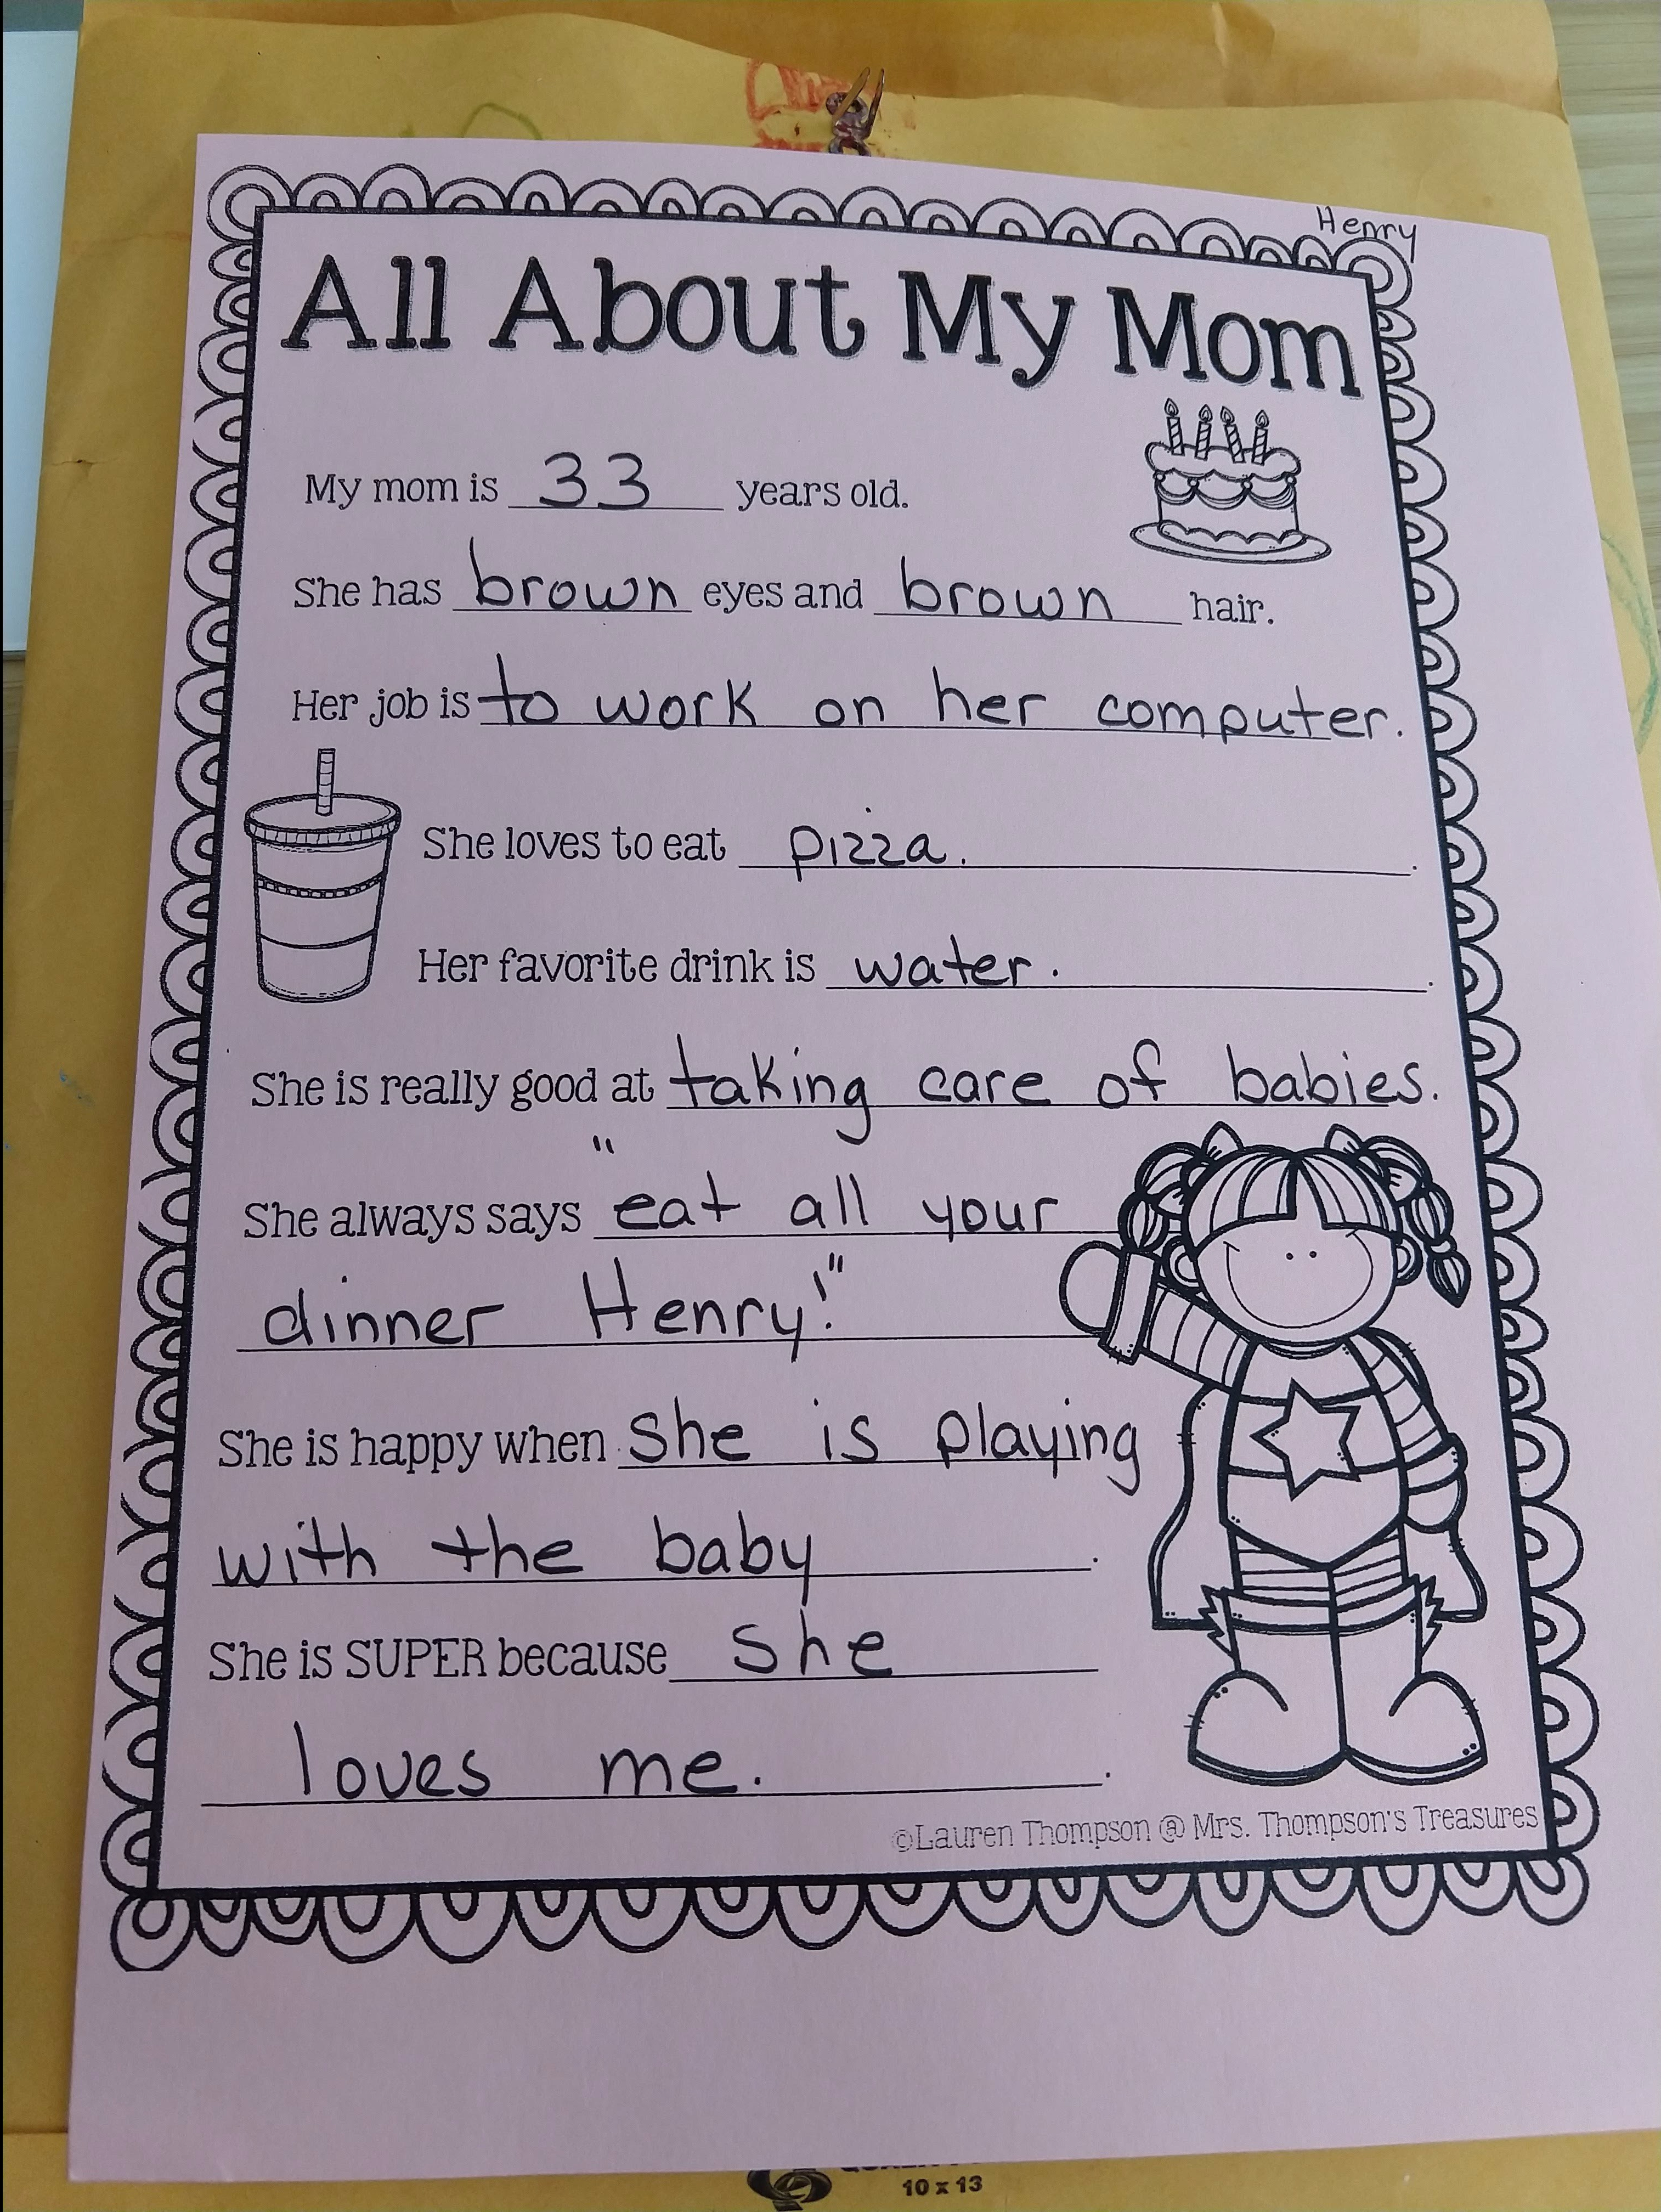 Henry
All About My Mom
My mom is 33 years old.
She has brown eyes and brown hair.
Her job is to work on her computer.
She loves to eat pizza. .
Her favorite drink is water. .
She is really good at taking care of babies.
She always says "eat all your
dinner Henry!"
She is happy when she is playing
with the baby .
She is SUPER because she
loves me. .
©Lauren Thompson @ Mrs. Thompson's Treasures
10 x 13